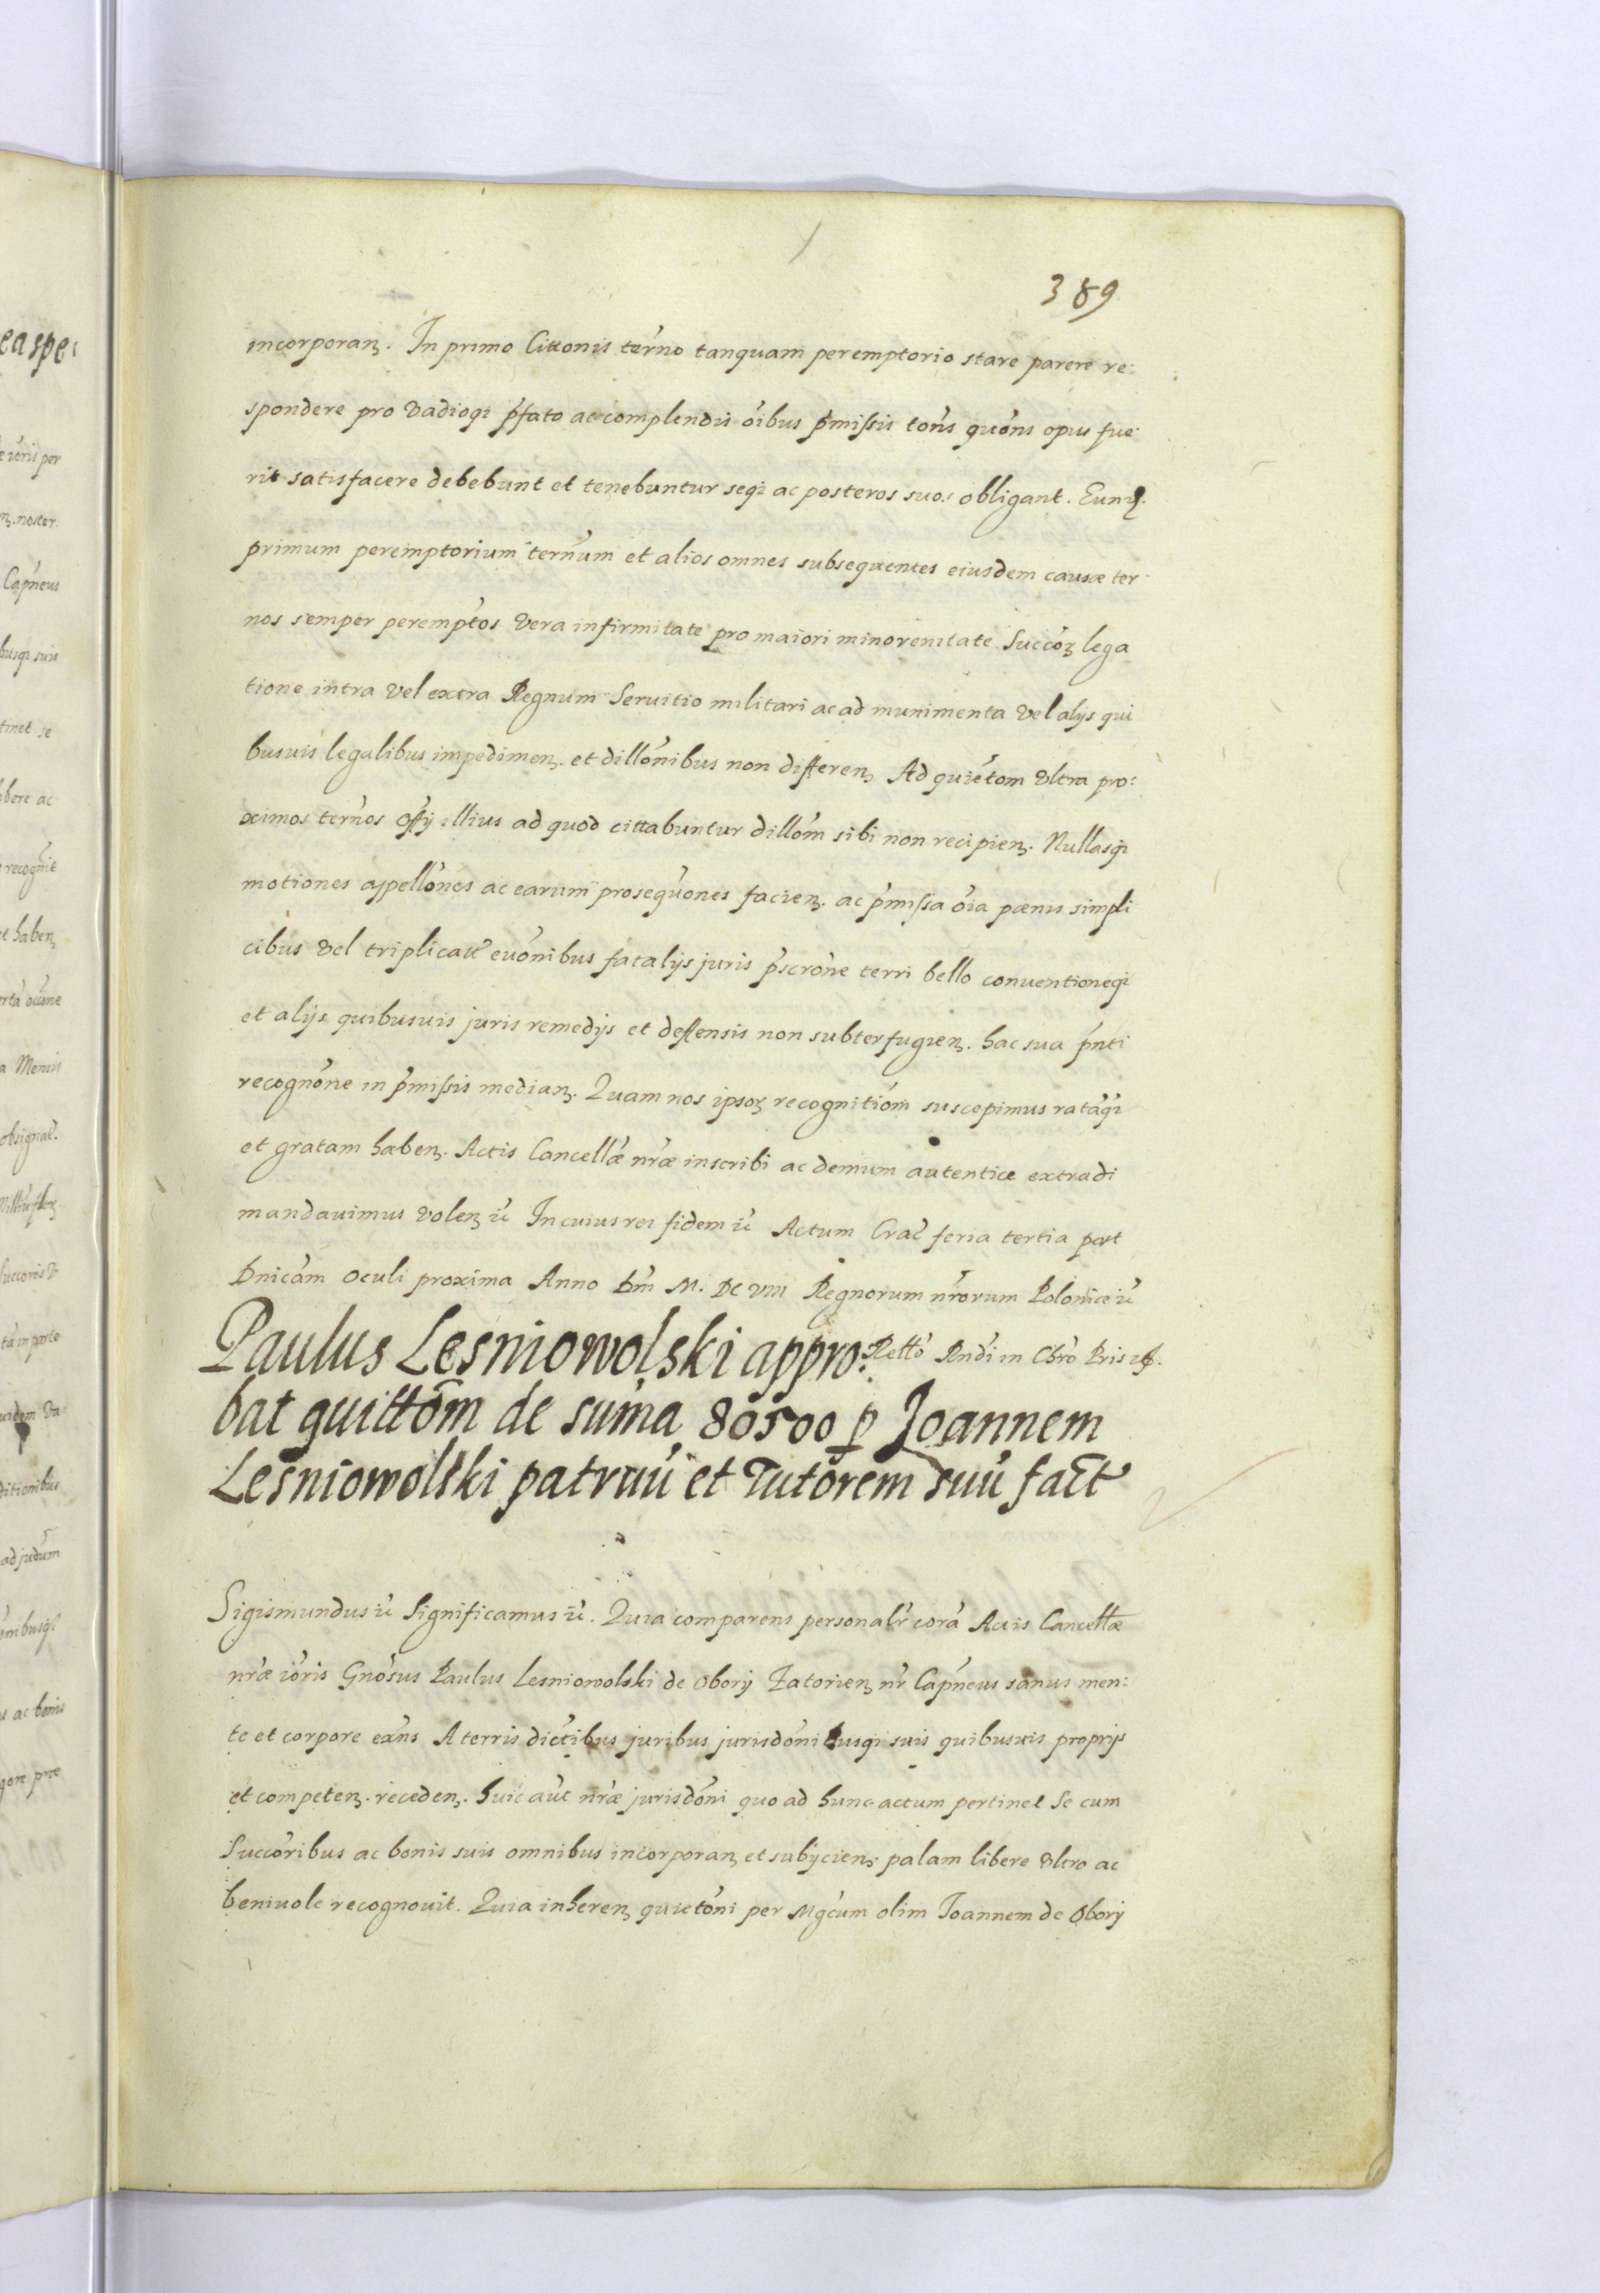 389
incorporanʒ. In primo Cittonis terno tanquam peremptorio stare parere re:
spondere pro vadioqꝫ pfato accomplendis oibus pmissis tons quons opus fue
rit satisfacere debebunt et tenebuntur seqꝫ ac posteros suos obligant. Eunqꝫ.
primum peremptorium ternum et alios omnes subsequentes eiusdem causæ ter
nos semper perempтos vera infirmitate pro maiori minorenitate Succoꝝ lega
tione intra vel extra Regnum Seruitio militari ac ad munimenta vel alijs qui
busuis legalibus impedimenʒ. et dillonibus non differenʒ Ad quietom vltra pro:
ximos ternos offij illius ad quod cittabuntur dillom sibi non recipienʒ. Nullasqꝫ
motiones appellones ac earum prosequones facienʒ. ac pmissa oia pænis simpli
cibus vel triplicat evonibus fatalijs juris pscrone terri bello conventioneqꝫ
et alijs quibusuis juris remedijs et deffensis non subterfugienʒ. hac sua pnti
recognone in pmissis medianʒ. Quam nos ipsoꝝ recognitiom suscepimus rataqꝫ
et gratam habenʒ. Actis Cancellæ nræ inscribi ac demum autentice extradi
mandauimus volenʒ ꝛc In cuius rei fidem ꝛc Actum Crac feria tertia post
Dnicam Oculi proxima Anno Dni M. DC VIII Regnorum nrorum Poloniæ ꝛc
Paulus Lesniowolski appro: Retto Rndi in Chro Pris ꝛc.
bat quittom de suma 80500 p Joannem
Lesniowolski patruu et Tutorem suu fact
Sigismundus ꝛc Significamus ꝛc. Quia comparens personalr cora Actis Cancellæ
nræ ioris Gnosus Paulus Lesniowolski de Obory Zatorienʒ nr Capneus sanus men:
te et corpore exns A terris dictibus juribus jurisdonibusqꝫ suis quibusuis proprijs
et competenʒ. recedenʒ. huic aut nræ jurisdoni quo ad hunc actum pertinet Se cum
Succoribus ac bonis suis omnibus incorporanʒ et subijcienʒ palam libere vltro ac
beniuole recognouit. Quia inherenʒ quietoni per Mgcum olim Joannem de Obory